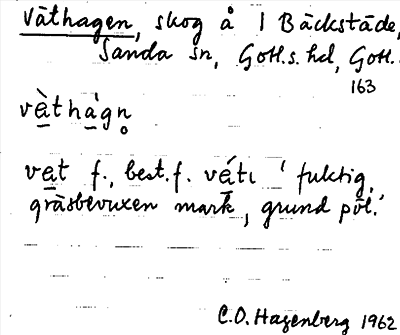 Väthagen, skog å 1 Bäckstäde,
Sanda sn, Gotl.s. hd, Gotl.
163
vèthàgn̥
vet f., best.f. véti ‘fuktig,
gräsbevuxen mark, grund pöl.’
C.O. Hagenberg 1962